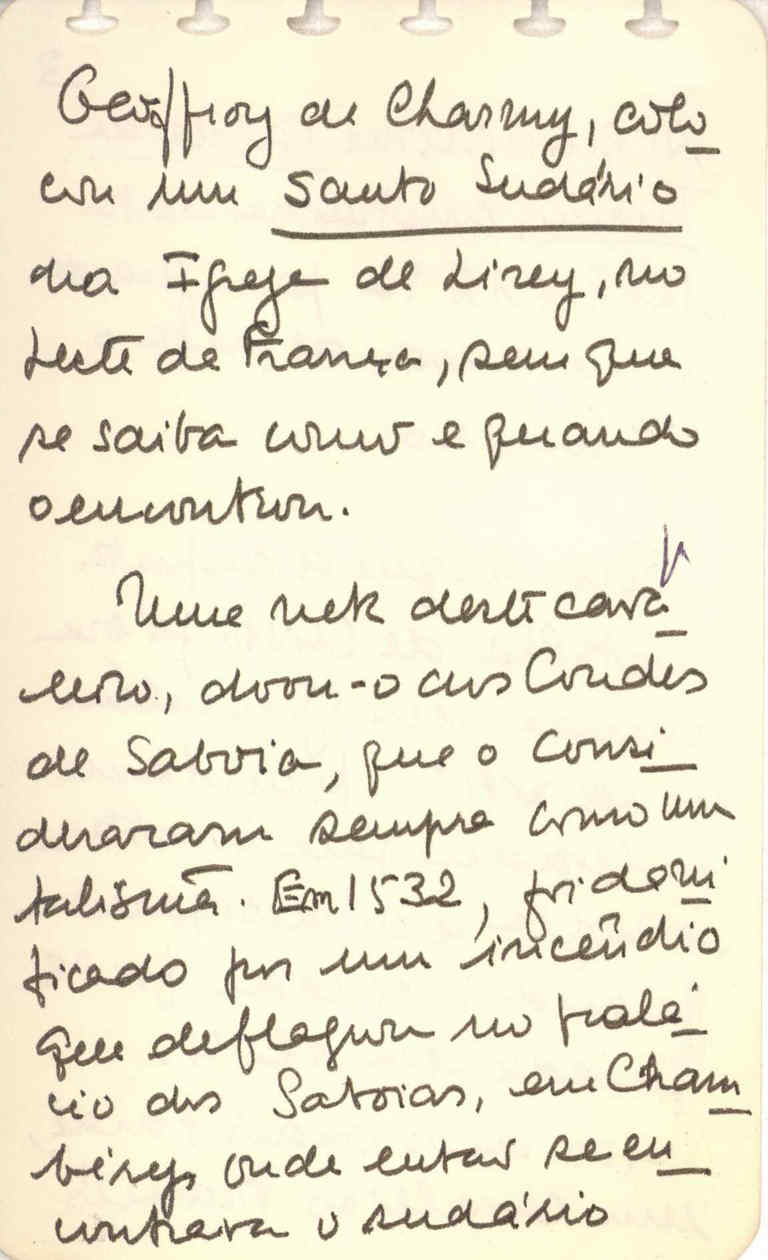 Geoffroy de Charmy, colo
cou um Santo Sudário
na Igreja de Lirey, no
Leste de França, sem que
se saiba como e quando
o encontrou.
Uma neta deste cava
leiro, doou-o aos Condes
de Saboia, que o consi
deraram sempre como um
talismã. Em 1532, foi dani
ficado por um incêndio
que deflagrou no palá
cio dos Saboias, em Cham
béry, onde então se en
contrava o sudário